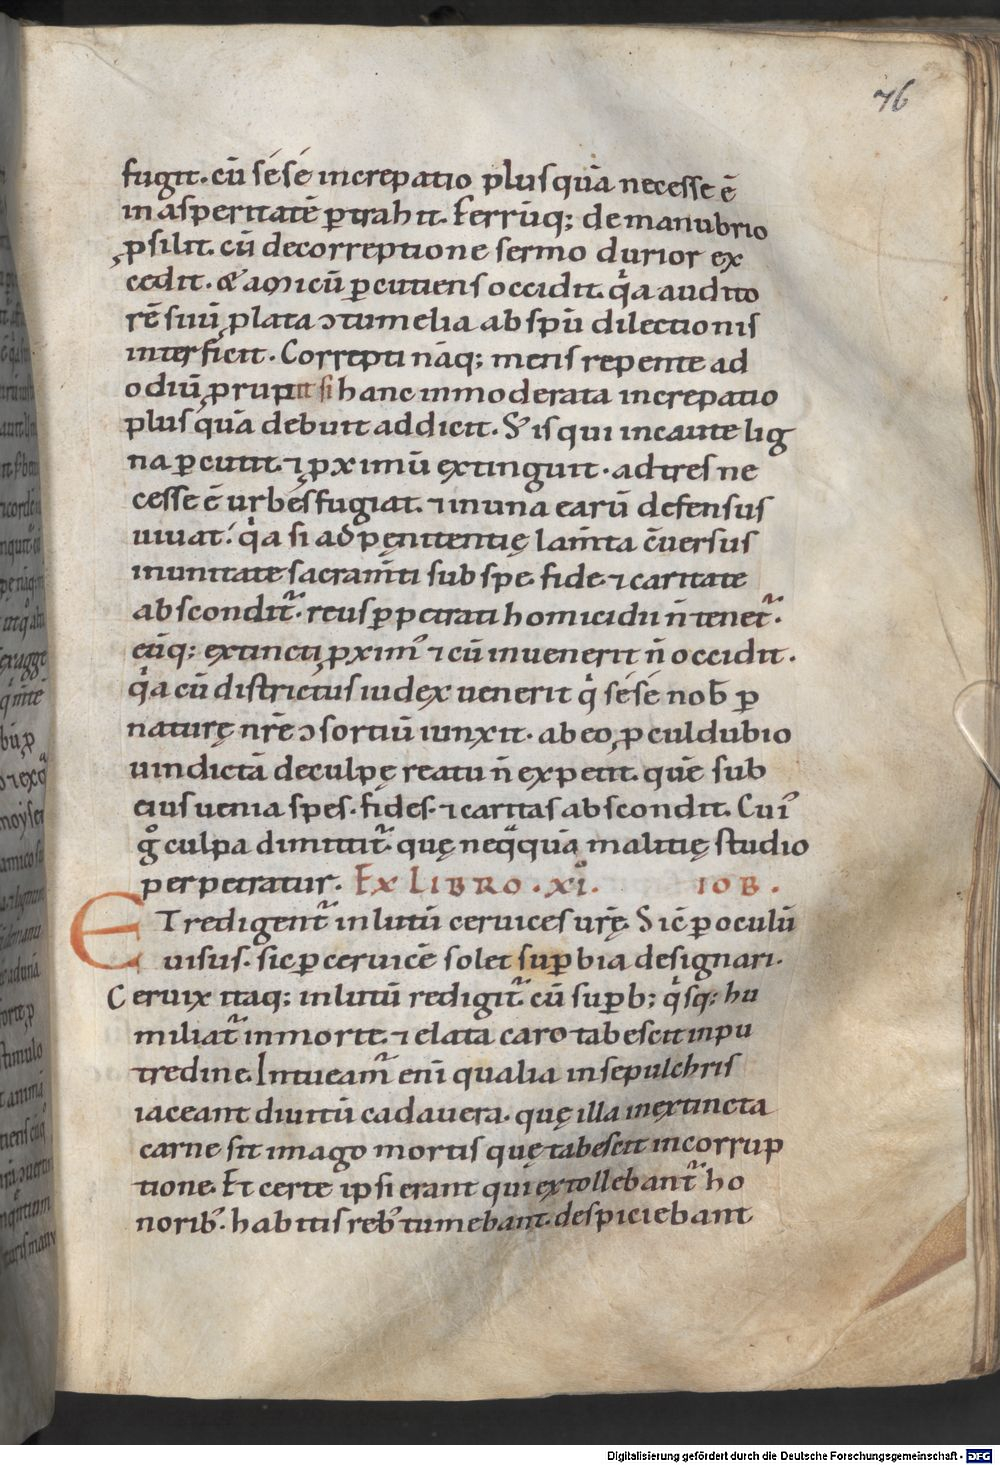 76
fugit. cū sése increpatio plus quā necesse ē
in asperitatē ꝑtrahit. Ferrūq; de manubrio
ꝓsilit. cū de correptione sermo durior ex
cedit. & amicū ꝑcutiens occidit. qͥa audito
rē suū ꝓlata ↄtumelia ab spū dilectionis
interficit. Correpti nāq; mens repente ad
odiū ꝓrupit si hanc inmoderata increpatio
plus quā debuit addicit. S; is qui incaute lig
na ꝑcutit. ⁊ ꝓximū extinguit. ad tres ne
cesse ē urbes fugiat. ⁊ in una earū defensus
uiuat. qͥa si ad pęnitentię lam̄ta c̄uersus
in unitate sacram̄ti sub spe. fide. ⁊ caritate
abscondit᷑. reus ꝑpetrati homicidii n̄ tenet᷑.
eūq; extincti ꝓximꝰ ⁊ cū inuenerit n̄ occidit.
qͥa cū districtus iudex uenerit qͥ sése nob̄ ꝑ
naturę nr̄e ↄsortiū iunxit. ab eo ꝓculdubio
uindictā de culpę reatu n̄ expetit. quē sub
eius uenia spes. fides. ⁊ caritas abscondit. Cuiꝰ
gͦ culpa dimittit᷑. quę neqͣquā malitię studio
perpetratur. EX LIBRO. XI.ͦ IOB.
ET redigent᷑ in lutū ceruices urę̄. Sic̄ ꝑ oculū
uisus. sic ꝑ ceruicē solet suꝑbia designari.
Ceruix itaq; in lutū redigit᷑. cū suꝑb; qͥsq; hu
miliat᷑ in morte. ⁊ elata caro tabescit in pu
tredine. Intueam᷑ eni̅ qualia in sepulchris
iaceant diuitū cadauera. quę illa in extincta
carne sit imago mortis quę tabescit in corrup
tione. Et certe ipsi erant qui extollebant᷑ ho
norib᷒. habitis reb᷒ tumebant. despiciebant
Digitalisierung gefördert durch die Deutsche Forschungsgemeinschaft - DFG